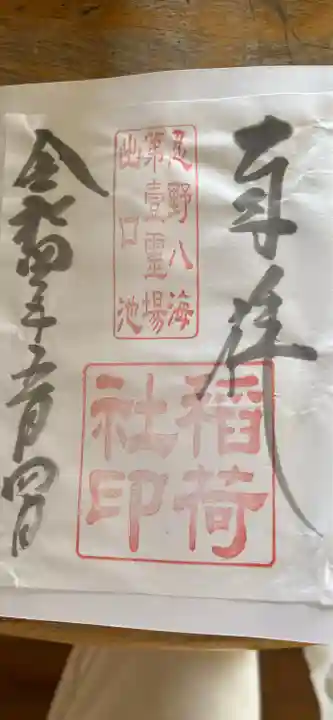 奉拝
忍野八海
第壹霊場
出口池
稲荷
社印
令和四年五月四日